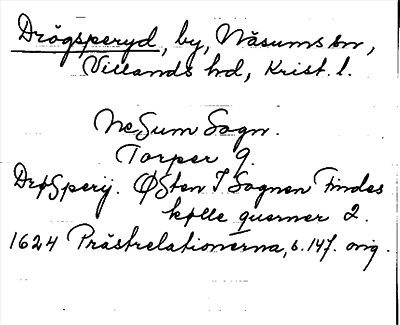 Drögsperyd, by, Näsums sn,
Villands hd, Krist. l.
NeSum Sogn.
Torper 9.
DrøSperij. ØSten I Sognen Findes
kølle querner 2.
1624 Prästrelationerna, s. 147. orig.